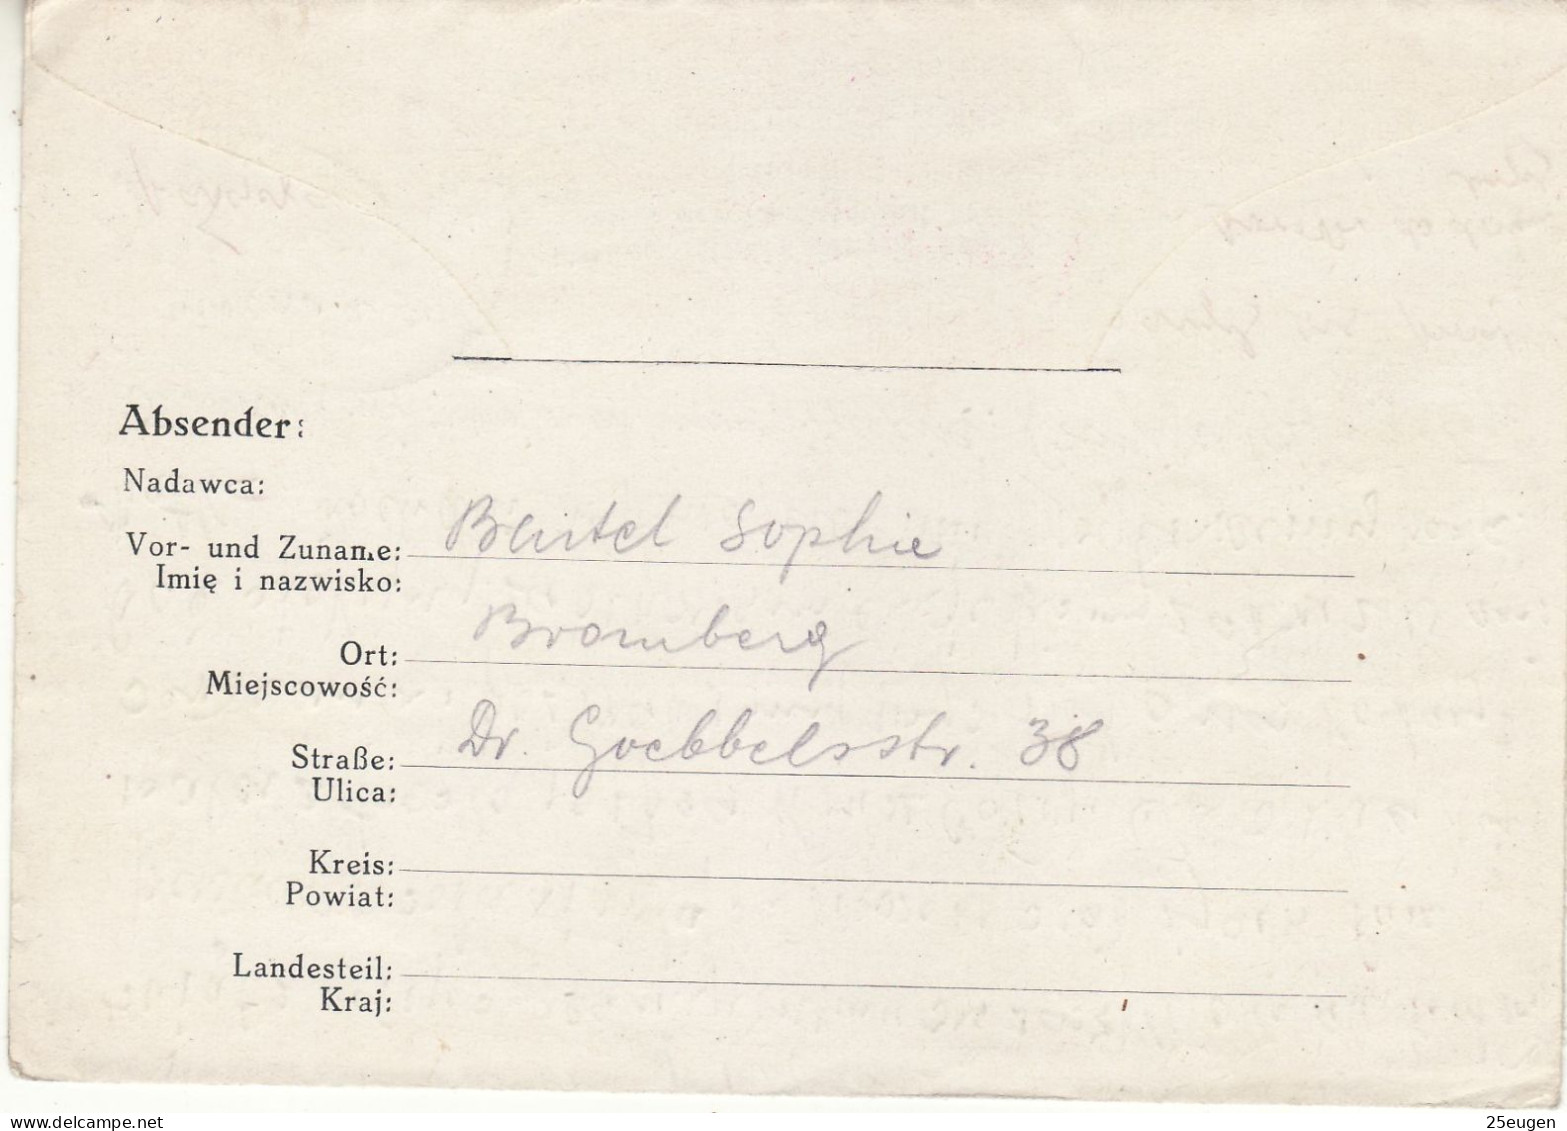 Absender:
Nadawca:
Vor- und Zuname: Bartel Sophie
Imię i nazwisko:
Ort: Bromberg
Miejscowość:
Dr. Goebbelsstr. 38
Straße:
Ulica:
Kreis:
Powiat:
Landesteil:
Kraj:
www.delcampe.net
25eugen